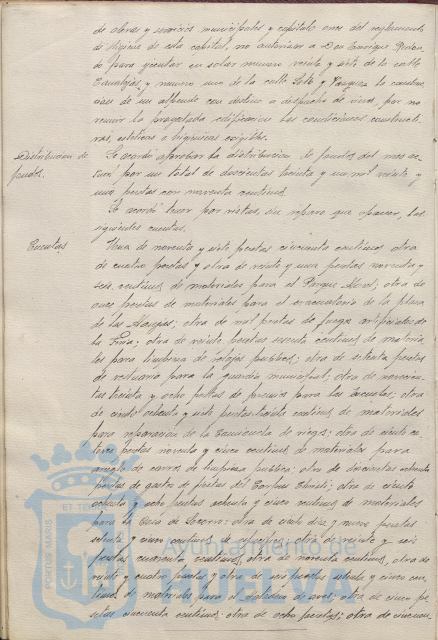 de obras y servicios municipales y capitulo once del reglamento
de higiene de esta capital, no autorizar a Don Enrique
do para ejecutar en solar numero veinte y siete de la calle
y numero uno de la calle Soto y la construc
cion de un con destino a despacho de vinos, por no
reunir la proyectada edificacion las condiciones constructi
vas, esteticas e higienicas exigibles.
Distribucion de
fondos.
Se acordó aprobar la distribucion de fondos del mes ac
tual por un total de doscientas treinta y un mil veinte y
una pesetas con noventa centimos.
Se acordó tener por vistas, sin reparo que oponer, las
siguientes cuentas.
Cuentas
Una de noventa y siete pesetas cincuenta centimos otra
de cuatro pesetas y otra de veinte y una pesetas noventa y
seis centimos de materiales para el Parque Moret; otra de
once pesetas de materiales para el evacuatorio de la plaza
de las Monjas; otra de mil pesetas de fuegos artificiales de
la Feria; otra de veinte pesetas sesenta centimos de materia
les para limpieza de relojes publicos; otra de setenta pesetas
de vestuario para la guardia municipal; otra de novecien
tas treinta y ocho pesetas de premios para las escuelas; otra
de ciento ochenta y siete pesetas treinta centimos de materiales
para reparacion de la de riegos; otra de ciento ca
torce pesetas noventa y cinco centimos de materiales para
arreglo de carros de limpieza publica; otra de doscientas ochenta
pesetas de gastos de fiestas del Corpus Christi; otra de ciento
ochenta y ocho pesetas ochenta y cinco centimos de materiales
para la Casa de Socorro; otra de ciento diez y nueve pesetas
setenta y cinco centimos de otra de veinte y seis
pesetas cuarenta centimos, otra de cincuenta centimos, otra de
veinte y cuatro pesetas y otra de seis pesetas setenta y cinco cen
timos de materiales para el de aves; otra de cinco pe
setas cincuenta centimos; otra de ocho pesetas; otra de cincuen
PORTUS MARIS
ET TE
Ayuntamiento de
HUELVA